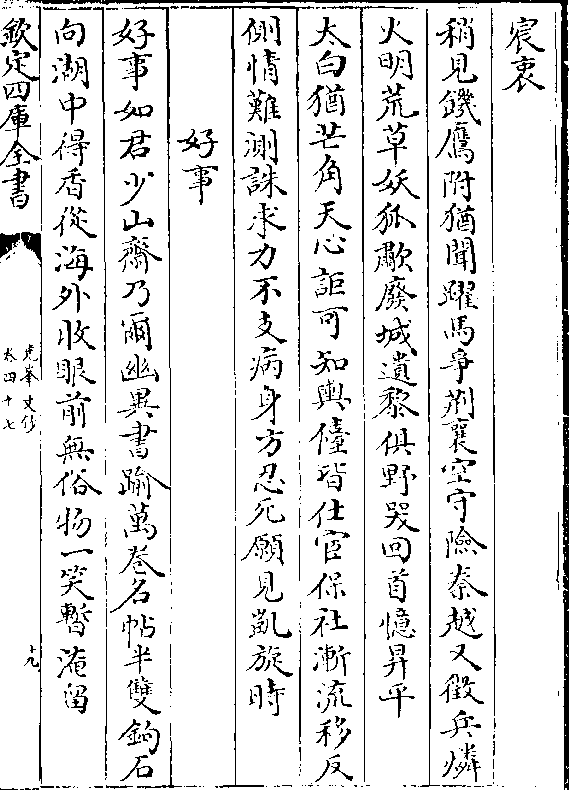 宸衷
稍見饑鷹附猶聞躍馬爭荆襄空守險秦越又徵兵燐
火明荒草妖狐歗廢城遺黎俱野哭回首憶昇平
太白猶芒角天心詎可知輿儓皆仕宦保社漸流移反
側情難測誅求力不支病身方忍死願見凱旋時
好事
好事如君少山齋乃爾幽異書踰萬卷名帖半雙鉤石
向湖中得香從海外收眼前無俗物一笑暫淹留
欽定四庫全書
堯峯文鈔
卷四十七
十九